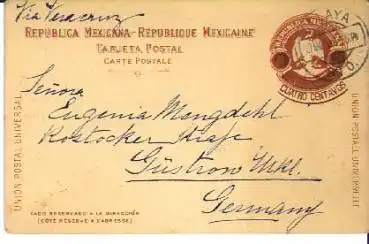 Via Veracruz
REPUBLICA MEXICANA-RÉPUBLIQUE MEXICAINE
TARJETA POSTAL
CARTE POSTALE
REPUBLICA MEXICANA
CUATRO CENTAVOS
AYA
UNION POSTAL UNIVERSAL
UNION POSTALE UNIVERSELLE
Señora
Eugenia Mengdehl
Rostocker Straße
Güstrow Mkl.
Germany
LADO RESERVADO A LA DIRECCION
(CÔTÉ RÉSERVÉ A L'ADRESSE)